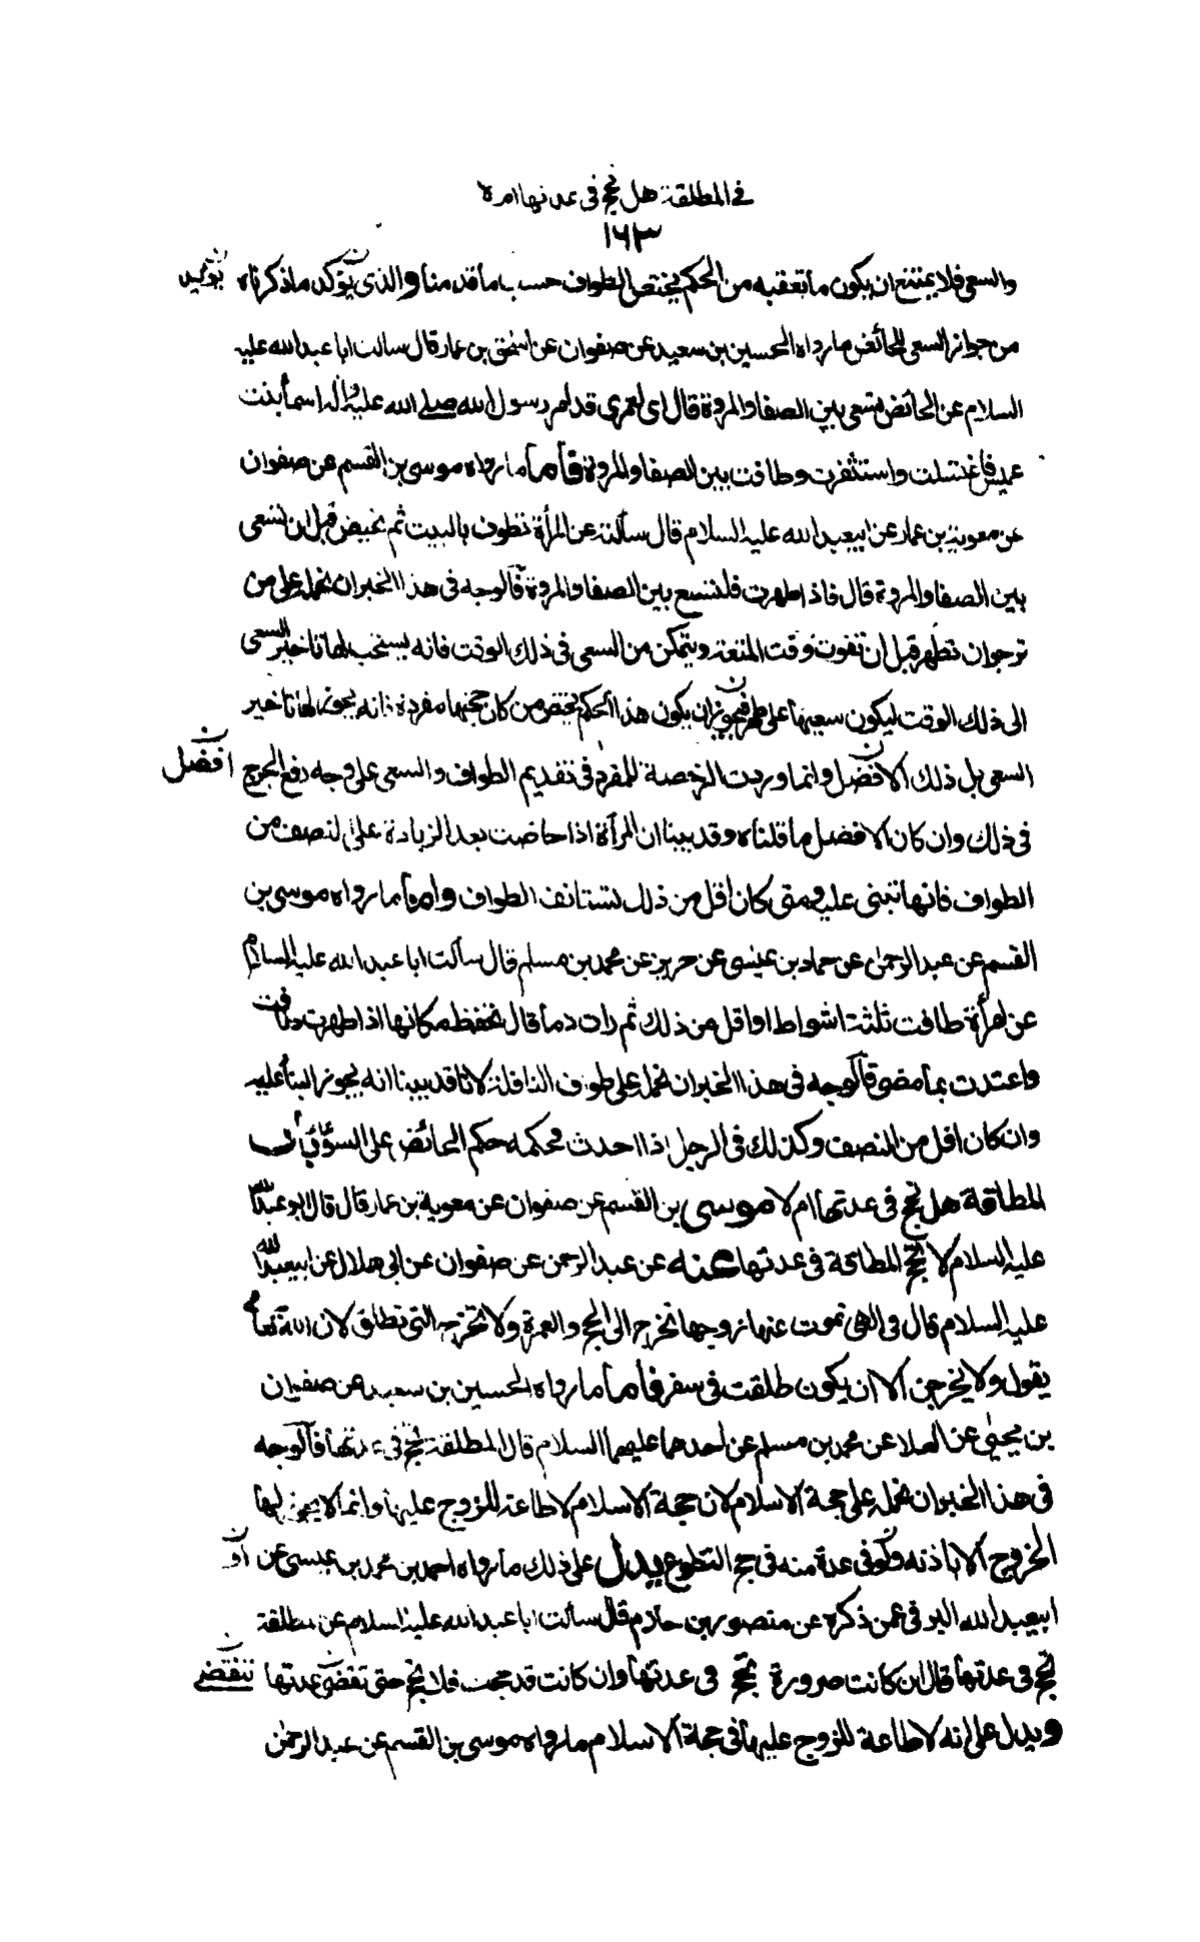 في المطلقة هل تحج في عدتها ام لا
١٦٣
والسعي فلا يمتنع ان يكون ما تعقبه من الحكم يختص الطواف حسب ما قدمنا والذي يؤكد ما ذكرناه
من جواز السعي للحائض ما رواه الحسين بن سعيد عن صفوان عن اسحق بن عمار قال سالت ابا عبد الله عليه
السلام عن الحائض تسعى بين الصفا والمروة قال اى لعمري قد امر رسول الله صلى الله عليه وآله اسماء بنت
عميس فاغتسلت واستثفرت وطافت بين الصفا والمروة فأما ما رواه موسى بن القسم عن صفوان
عن معوية بن عمار عن ابيعبد الله عليه السلام قال سألته عن المرأة تطوف بالبيت ثم تحيض قبل ان تسعى
بين الصفا والمروة قال فاذا طهرت فلتسع بين الصفا والمروة فالوجه في هذا الخبر ان نحمله على من
ترجوان تطهر قبل ان تفوت وقت المتعة ويتمكن من السعي في ذلك الوقت فانه يستحب لها تاخير السعي
الى ذلك الوقت ليكون سعيها على طهر فيجوز ان يكون هذا الحكم يختص من كان حجتها مفردة فانه يجوز لها تاخير
السعي بل ذلك الافضل وانما وردت الرخصة للمفرد في تقديم الطواف والسعي على وجه رفع الحرج افضل
في ذلك وان كان الافضل ما قلناه وقد بينا ان المرأة اذا حاضت بعد الزيادة على النصف من
الطواف فانها تبنى عليه ومتى كان اقل من ذلك تستانف الطواف واما ما رواه موسى بن
القسم عن عبد الرحمن عن حماد بن عيسى عن حريز عن محمد بن مسلم قال سألت ابا عبد الله عليه السلام
عن امرأة طافت ثلثة اشواط او اقل من ذلك ثم رات دما قال تحفظ مكانها اذا طهرت طافت
واعتدت بما مضى فالوجه في هذا الخبر ان نحمله على طواف النافلة لانا قد بينا انه يجوز البناء عليه
وان كان اقل من النصف وكذلك في الرجل اذا احدث فحكمه حكم الحائض على السواء باب
المطلقة هل تحج في عدتها ام لا موسى بن القسم عن صفوان عن معوية بن عمار قال قال ابو عبد الله
عليه السلام لا تحج المطلقة في عدتها عنه عن عبد الرحمن عن صفوان عن ابي هلال عن ابيعبد الله
عليه السلام قال في التي تموت عنها زوجها تخرج الى الحج والعمرة ولا تخرج التي تطلق لان الله تعالى
يقول ولا يخرجن الا ان يكون طلقت في سفر فأما ما رواه الحسين بن سعيد عن صفوان
بن يحيى عن العلا عن محمد بن مسلم عن احدهما عليهما السلام قال المطلقة تحج في عدتها فالوجه
في هذا الخبر ان نحمله على حجة الاسلام لان حجة الاسلام لا طاعة للزوج عليها وانما لا يجوز لها
الخروج الا باذنه وكو في عدة منه في حج التطوع يدل على ذلك ما رواه احمد بن محمد بن عيسى عن او
ابيعبد الله البرقي عمن ذكره عن منصور بن حازم قال سألت ابا عبد الله عليه السلام عن مطلقة
تحج في عدتها قال ان كانت صرورة تحج في عدتها وان كانت قد حجت فلا تحج حتى تقضى عدتها تنقضي
ويدل على انه لا طاعة للزوج عليها في حجة الاسلام ما رواه موسى بن القسم عن عبد الرحمن